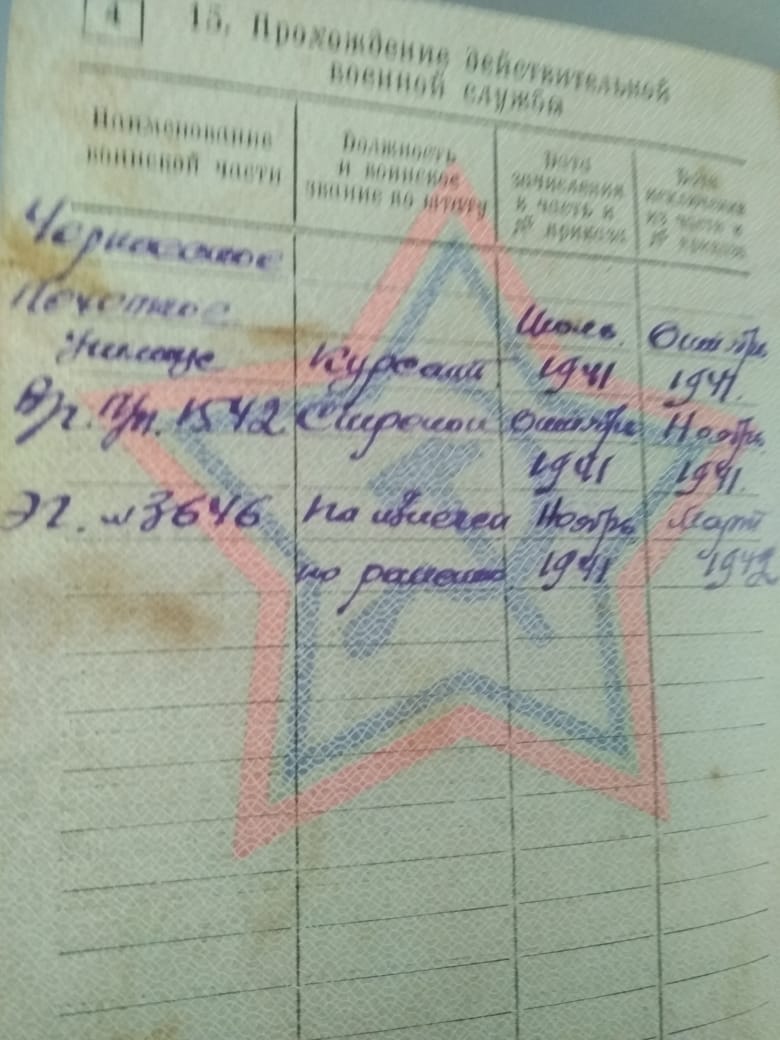 4
15. Прохождение действительной
военной службы
Наименование
воинской части
Должность
и воинское
звание по штату
Дата
зачисления
в часть и
№ приказа
Дата
исключения
из части и
№ приказа
Пехотное
Курсант
Июль
1941
Октябрь
1941.
В/ч. п/п. 1542
Октябрь
1941
Ноябрь
1941.
ЭГ. №3646
На излечен
по ранению
Ноябрь
1941
Март
1942